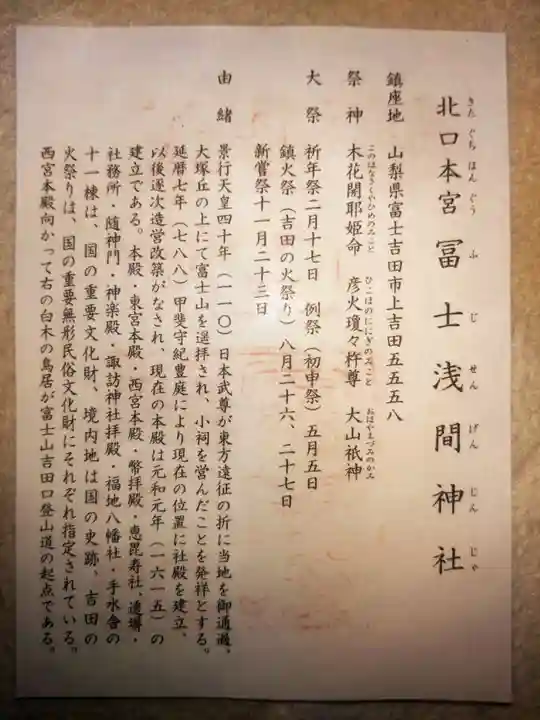 北口本宮冨士浅間神社
きたぐちほんぐうふじせんげんじんじゃ
鎮座地　山梨県富士吉田市上吉田五五五八
祭神　木花開耶姫命　彦火瓊々杵尊　大山祇神
このはなさくやひめのみこと　ひこほのににぎのみこと　おおやまづみのかみ
大祭　祈年祭二月十七日　例祭（初申祭）五月五日
鎮火祭（吉田の火祭り）八月二十六、二十七日
新嘗祭十一月二十三日
由緒　景行天皇四十年（一一〇）日本武尊が東方遠征の折に当地を御通過、
大塚丘の上にて富士山を遥拝され、小祠を営んだことを発祥とする。
延暦七年（七八八）甲斐守紀豊庭により現在の位置に社殿を建立。
以後逐次造営改築がなされ、現在の本殿は元和元年（一六一五）の
建立である。本殿・東宮本殿・西宮本殿・幣拝殿・恵毘寿社、透塀・
社務所・随神門・神楽殿・諏訪神社拝殿・福地八幡社・手水舎の
十一棟は、国の重要文化財、境内地は国の史跡、吉田の
火祭りは、国の重要無形民俗文化財にそれぞれ指定されている。
西宮本殿向かって右の白木の鳥居が富士山吉田口登山道の起点である。